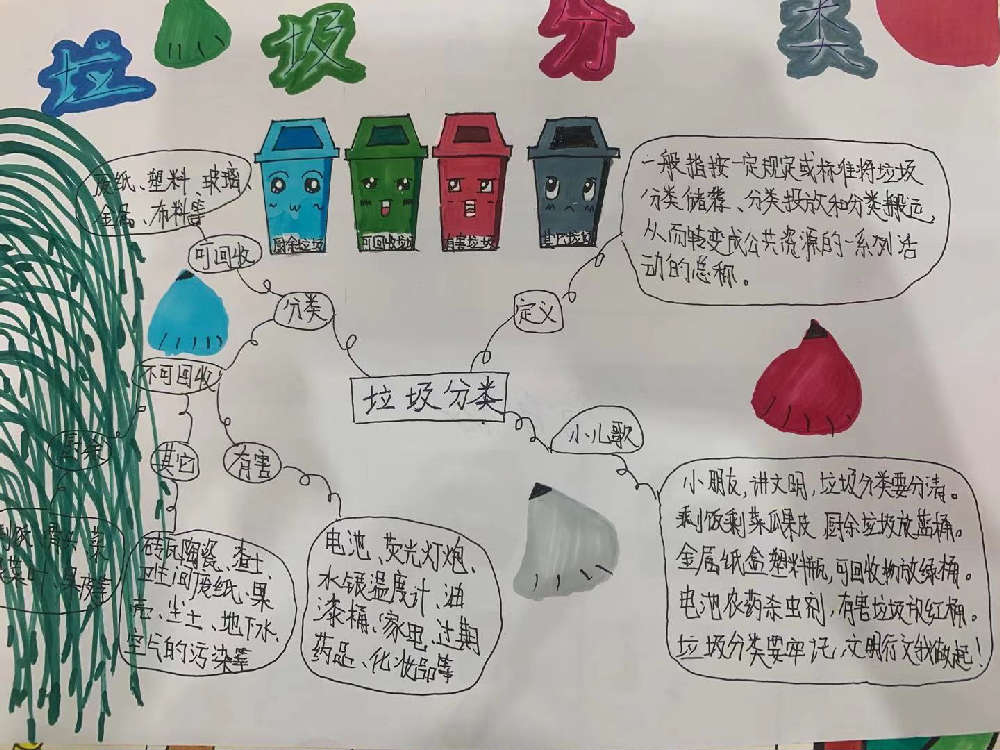 垃圾分类
厨余垃圾
可回收垃圾
有害垃圾
其它垃圾
废纸、塑料、玻璃、
金属、布料等
可回收
分类
不可回收
厨余
其它
有害
垃圾分类
定义
一般指按一定规定或标准将垃圾
分类储存、分类投放和分类搬运,
从而转变成公共资源的一系列活
动的总称。
小儿歌
小朋友,讲文明,垃圾分类要分清。
剩饭剩菜瓜果皮 厨余垃圾放蓝桶。
金属纸盒塑料瓶,可回收物放绿桶。
电池农药杀虫剂,有害垃圾放红桶。
垃圾分类要牢记,文明行文我做起!
砖瓦陶瓷、渣土、
卫生间废纸、果
壳、尘土、地下水、
空气的污染等
电池、荧光灯炮、
水银温度计、油
漆桶、家电、过期
药品、化妆品等